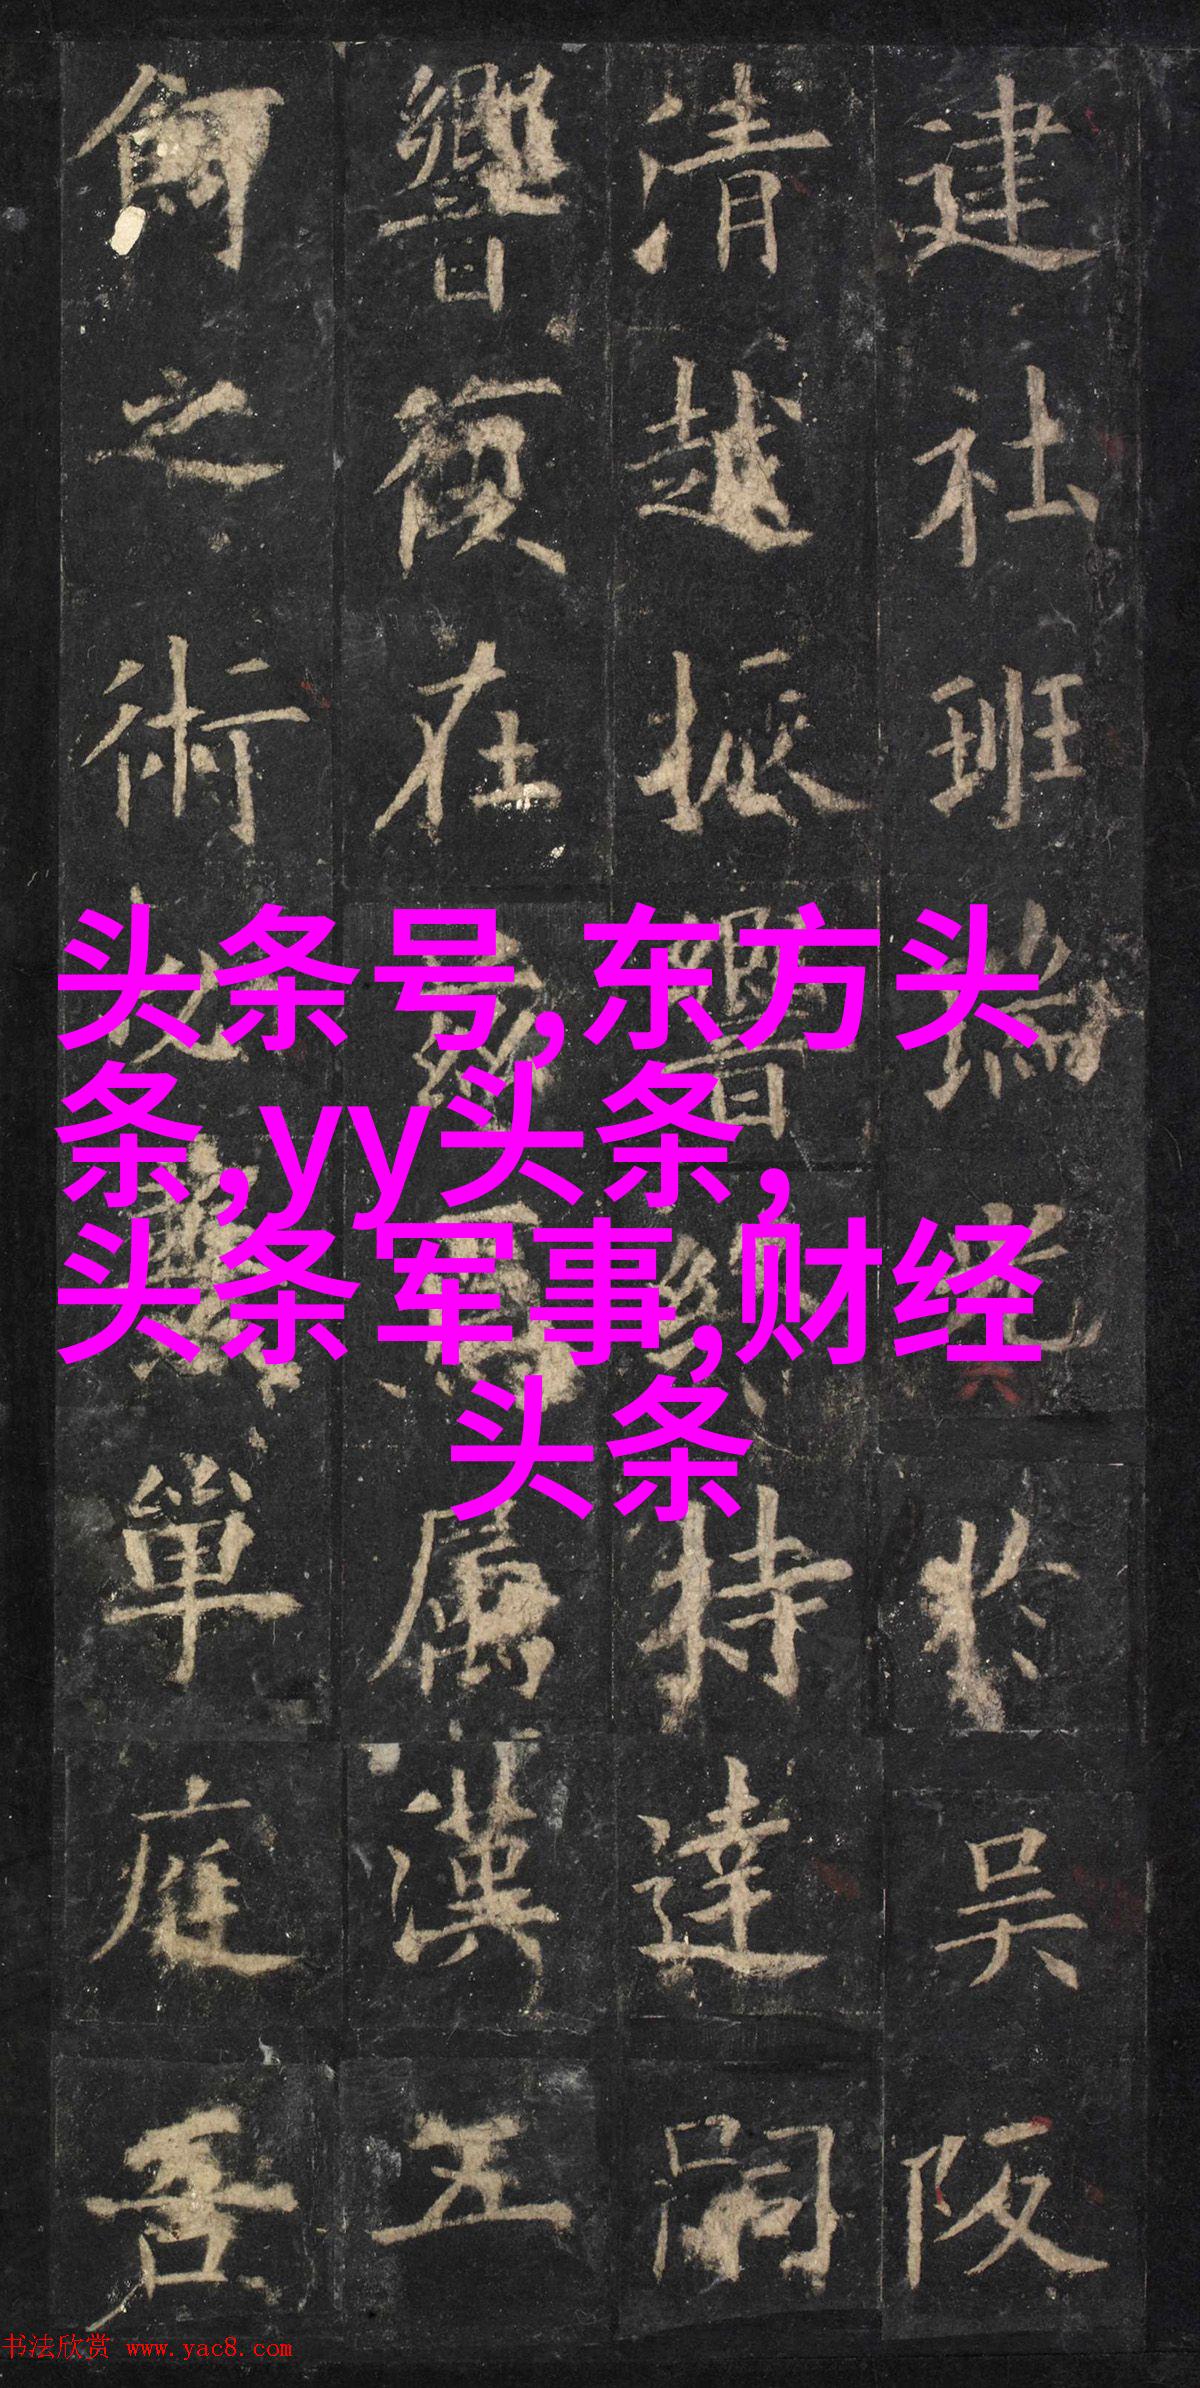 建社班瑞於吳阪
清越振響特達嗣
響在屬漢五
之術單庭吾
头条号,东方头
条,yy头条,
头条军事,财经
头条
书法欣赏 www.yac8.com